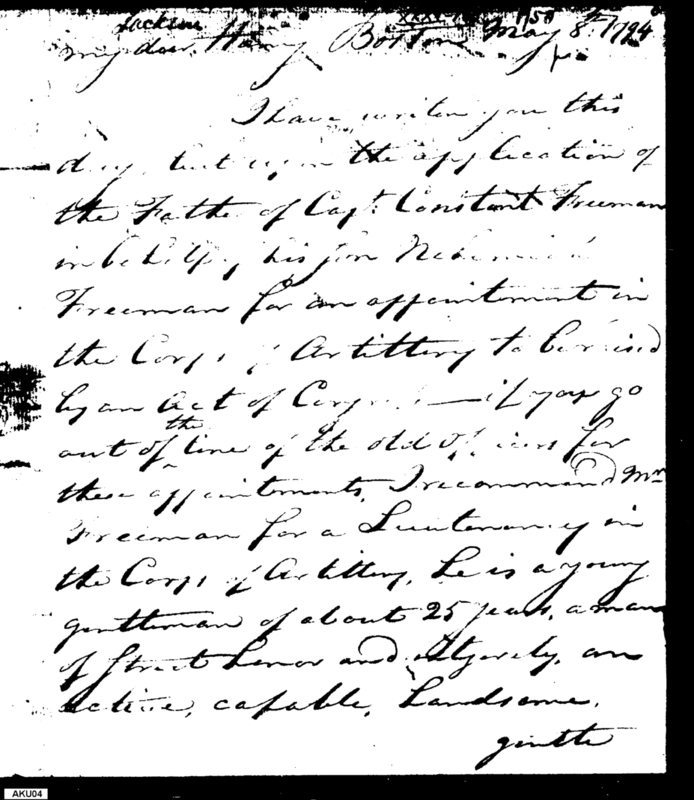 Jackson
My dear Harry Boston May 8th. 1794
I have written you this
day, but upon the application of
the Father of Capt. Constant Freeman
in behalf of his son Nehemiah
Freeman for an appointment in
the Corps of Artillery to be raised
by an Act of Congress — if you go
out of the line of the old officers for
these appointments, I recommend Mr.
Freeman for a Lieutenancy in
the Corps of Artillery, he is a young
gentleman of about 25 years, a man
of strict honor and integrity, an
active, capable, handsome,
gentle
AKU04